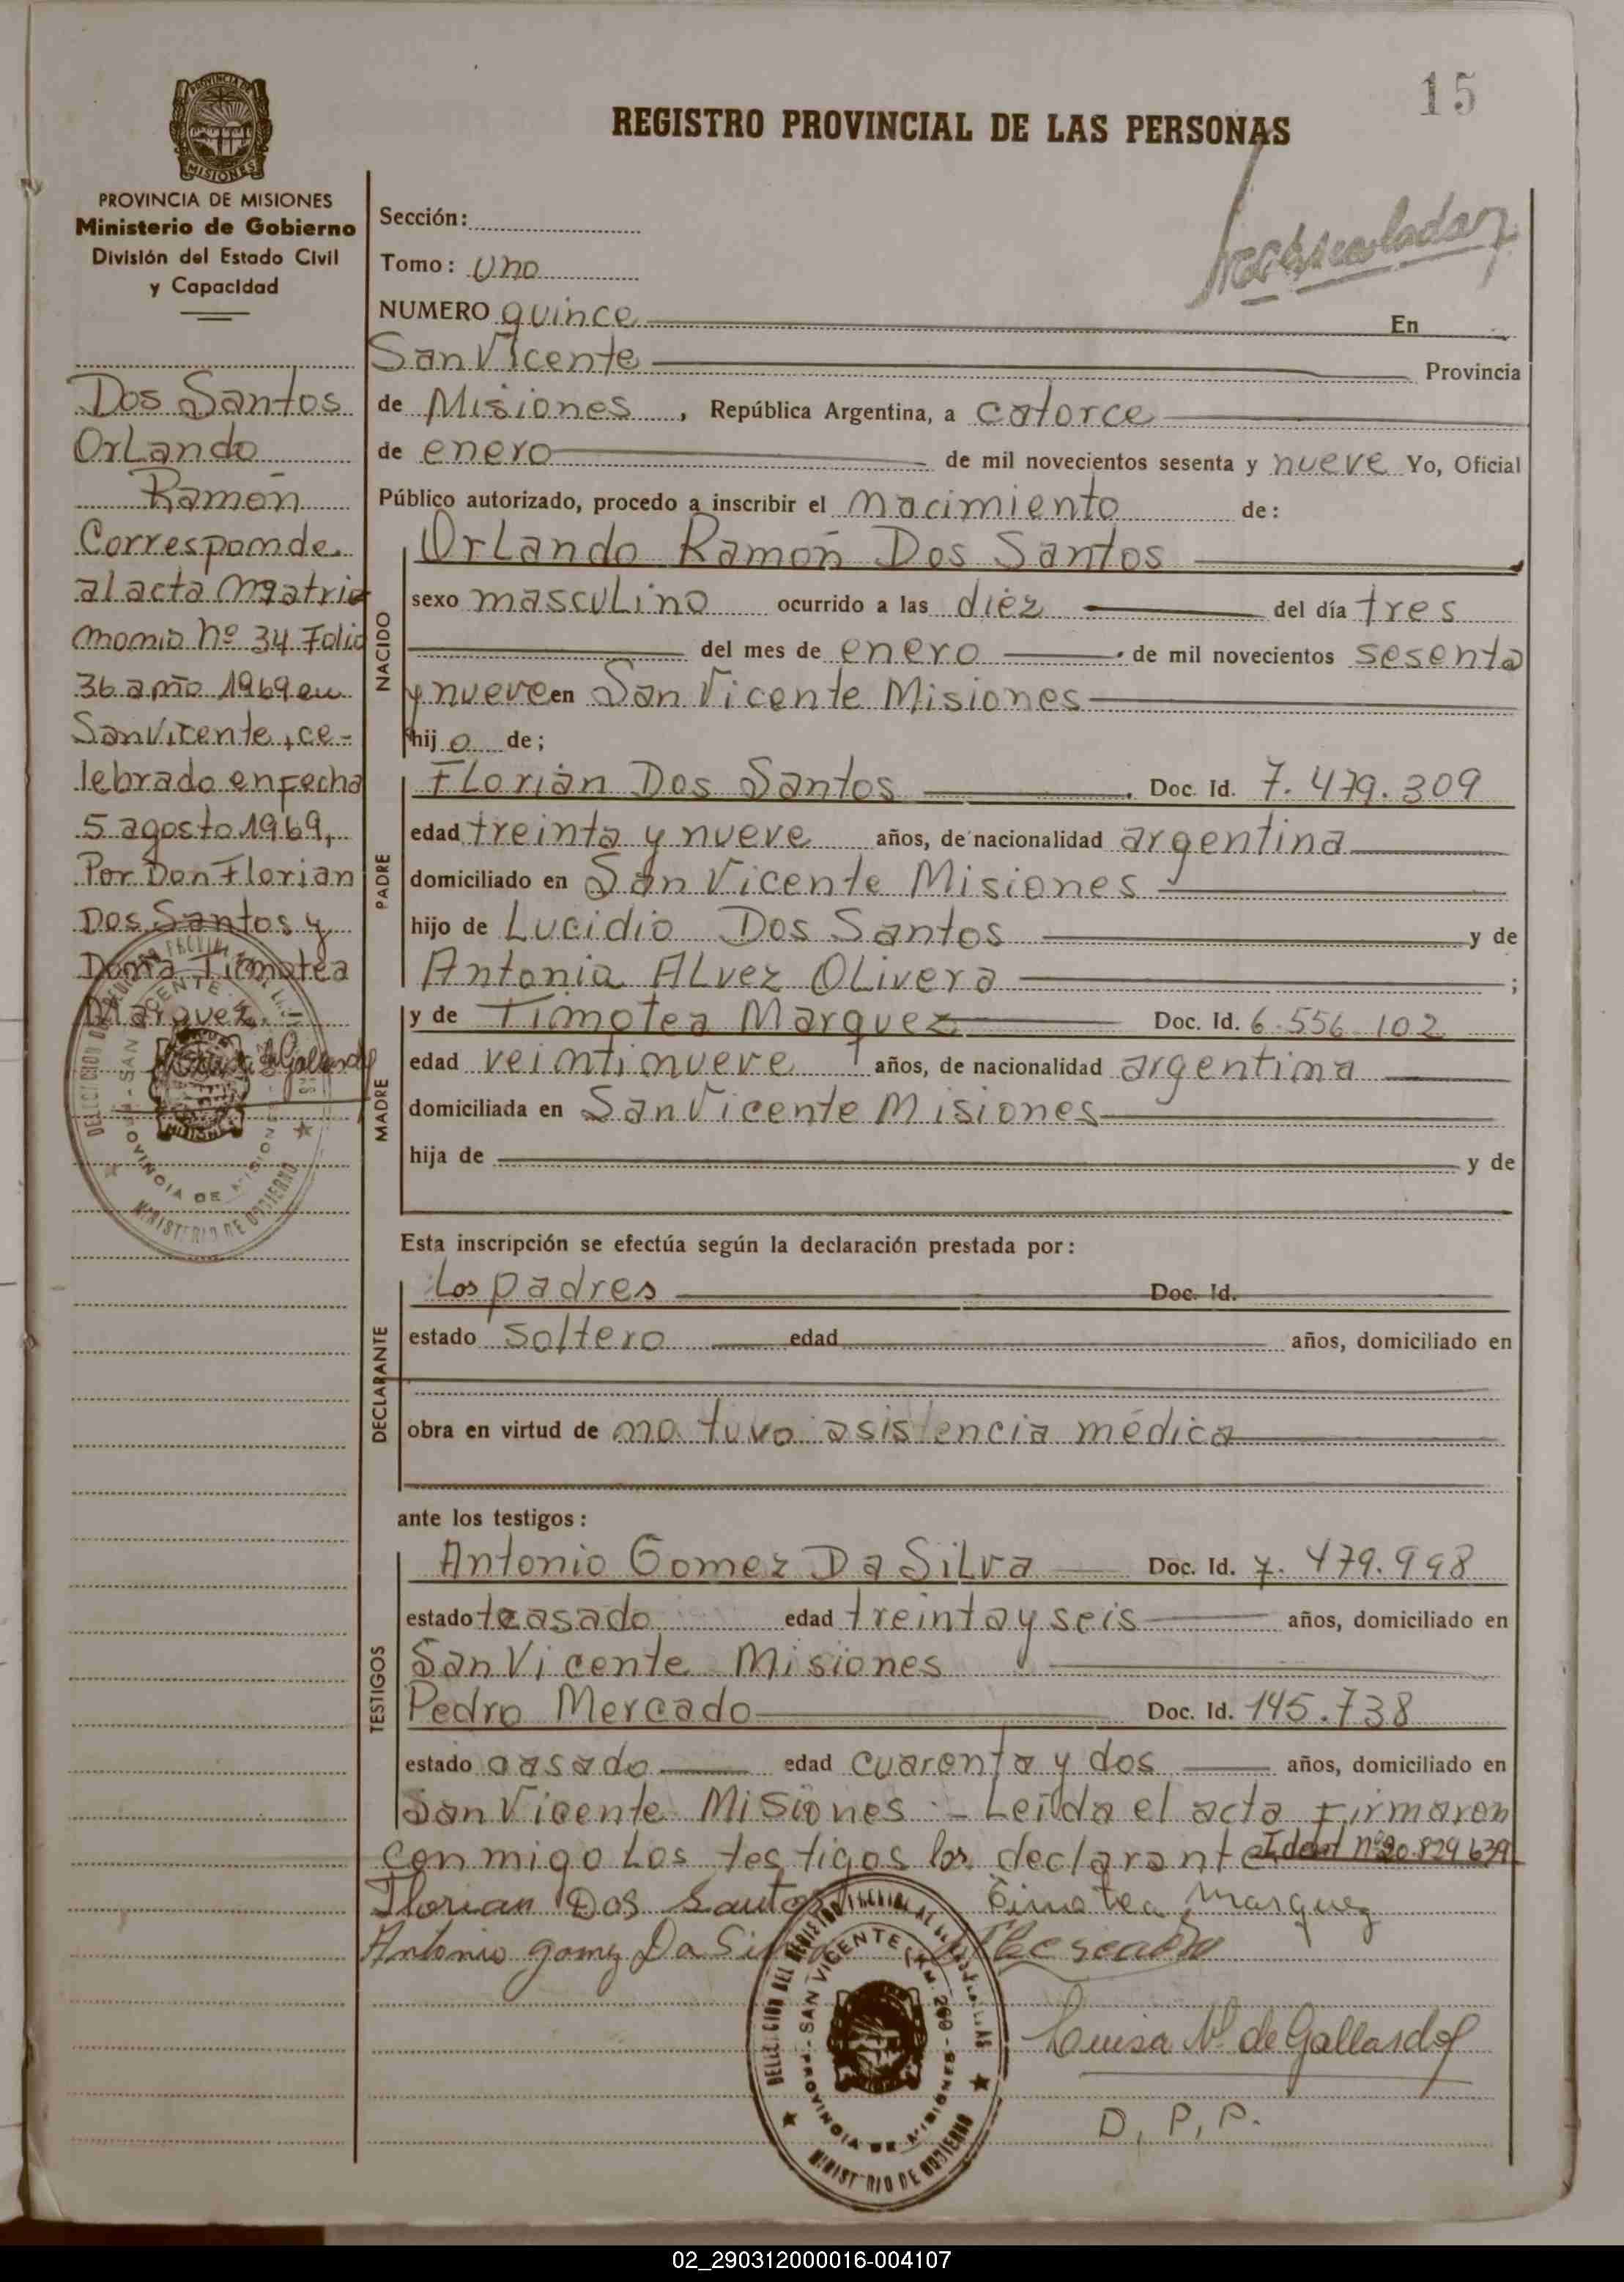 15
REGISTRO PROVINCIAL DE LAS PERSONAS
PROVINCIA DE MISIONES
Ministerio de Gobierno
División del Estado Civil
y Capacidad
Dos Santos
OrLando
Ramón
Corresponde
al acta Matri
monio Nº 34 Folio
36 año 1969 en
San Vicente, ce-
lebrado en fecha
5 agosto 1969,
Por Don Florian
Dos Santos y
Doña Timotea
Marquez.
Sección:
Tomo: Uno
NUMERO quince En
San Vicente Provincia
de Misiones, República Argentina, a catorce
de enero de mil novecientos sesenta y nueve Yo, Oficial
Público autorizado, procedo a inscribir el Nacimiento de:
NACIDO
OrLando Ramón Dos Santos
sexo mascuLino ocurrido a las diéz del día tres
del mes de enero de mil novecientos sesenta
y nueve en San Vicente Misiones
hijo de;
PADRE
FLorián Dos Santos Doc. Id. 7.479.309
edad treinta y nueve años, de nacionalidad argentina
domiciliado en San Vicente Misiones
hijo de Lucidio Dos Santos y de
Antonia ALvez OLivera ;
MADRE
y de Timotea Marquez Doc. Id. 6.556.102
edad veintinueve años, de nacionalidad argentina
domiciliada en San Vicente Misiones
hija de y de
Esta inscripción se efectúa según la declaración prestada por:
DECLARANTE
Los padres Doc. Id.
estado soltero edad años, domiciliado en
obra en virtud de no tuvo asistencia médica
ante los testigos:
TESTIGOS
Antonio Gomez Da SiLva Doc. Id. 7.479.998
estado casado edad treinta y seis años, domiciliado en
San Vicente Misiones
Pedro Mercado Doc. Id. 145.738
estado casado edad cuarenta y dos años, domiciliado en
San Vicente Misiones - Leida el acta Firmaron
conmigo Los testigos los declarante Ident nº 20.829.679
Florian Dos Santos Timotea Marquez
Antonio gomez Da Silva
SAN VICENTE
PROVINCIA DE MISIONES
MINISTERIO DE GOBIERNO
Luisa de Gallardo
D. P. P.
02_290312000016-004107